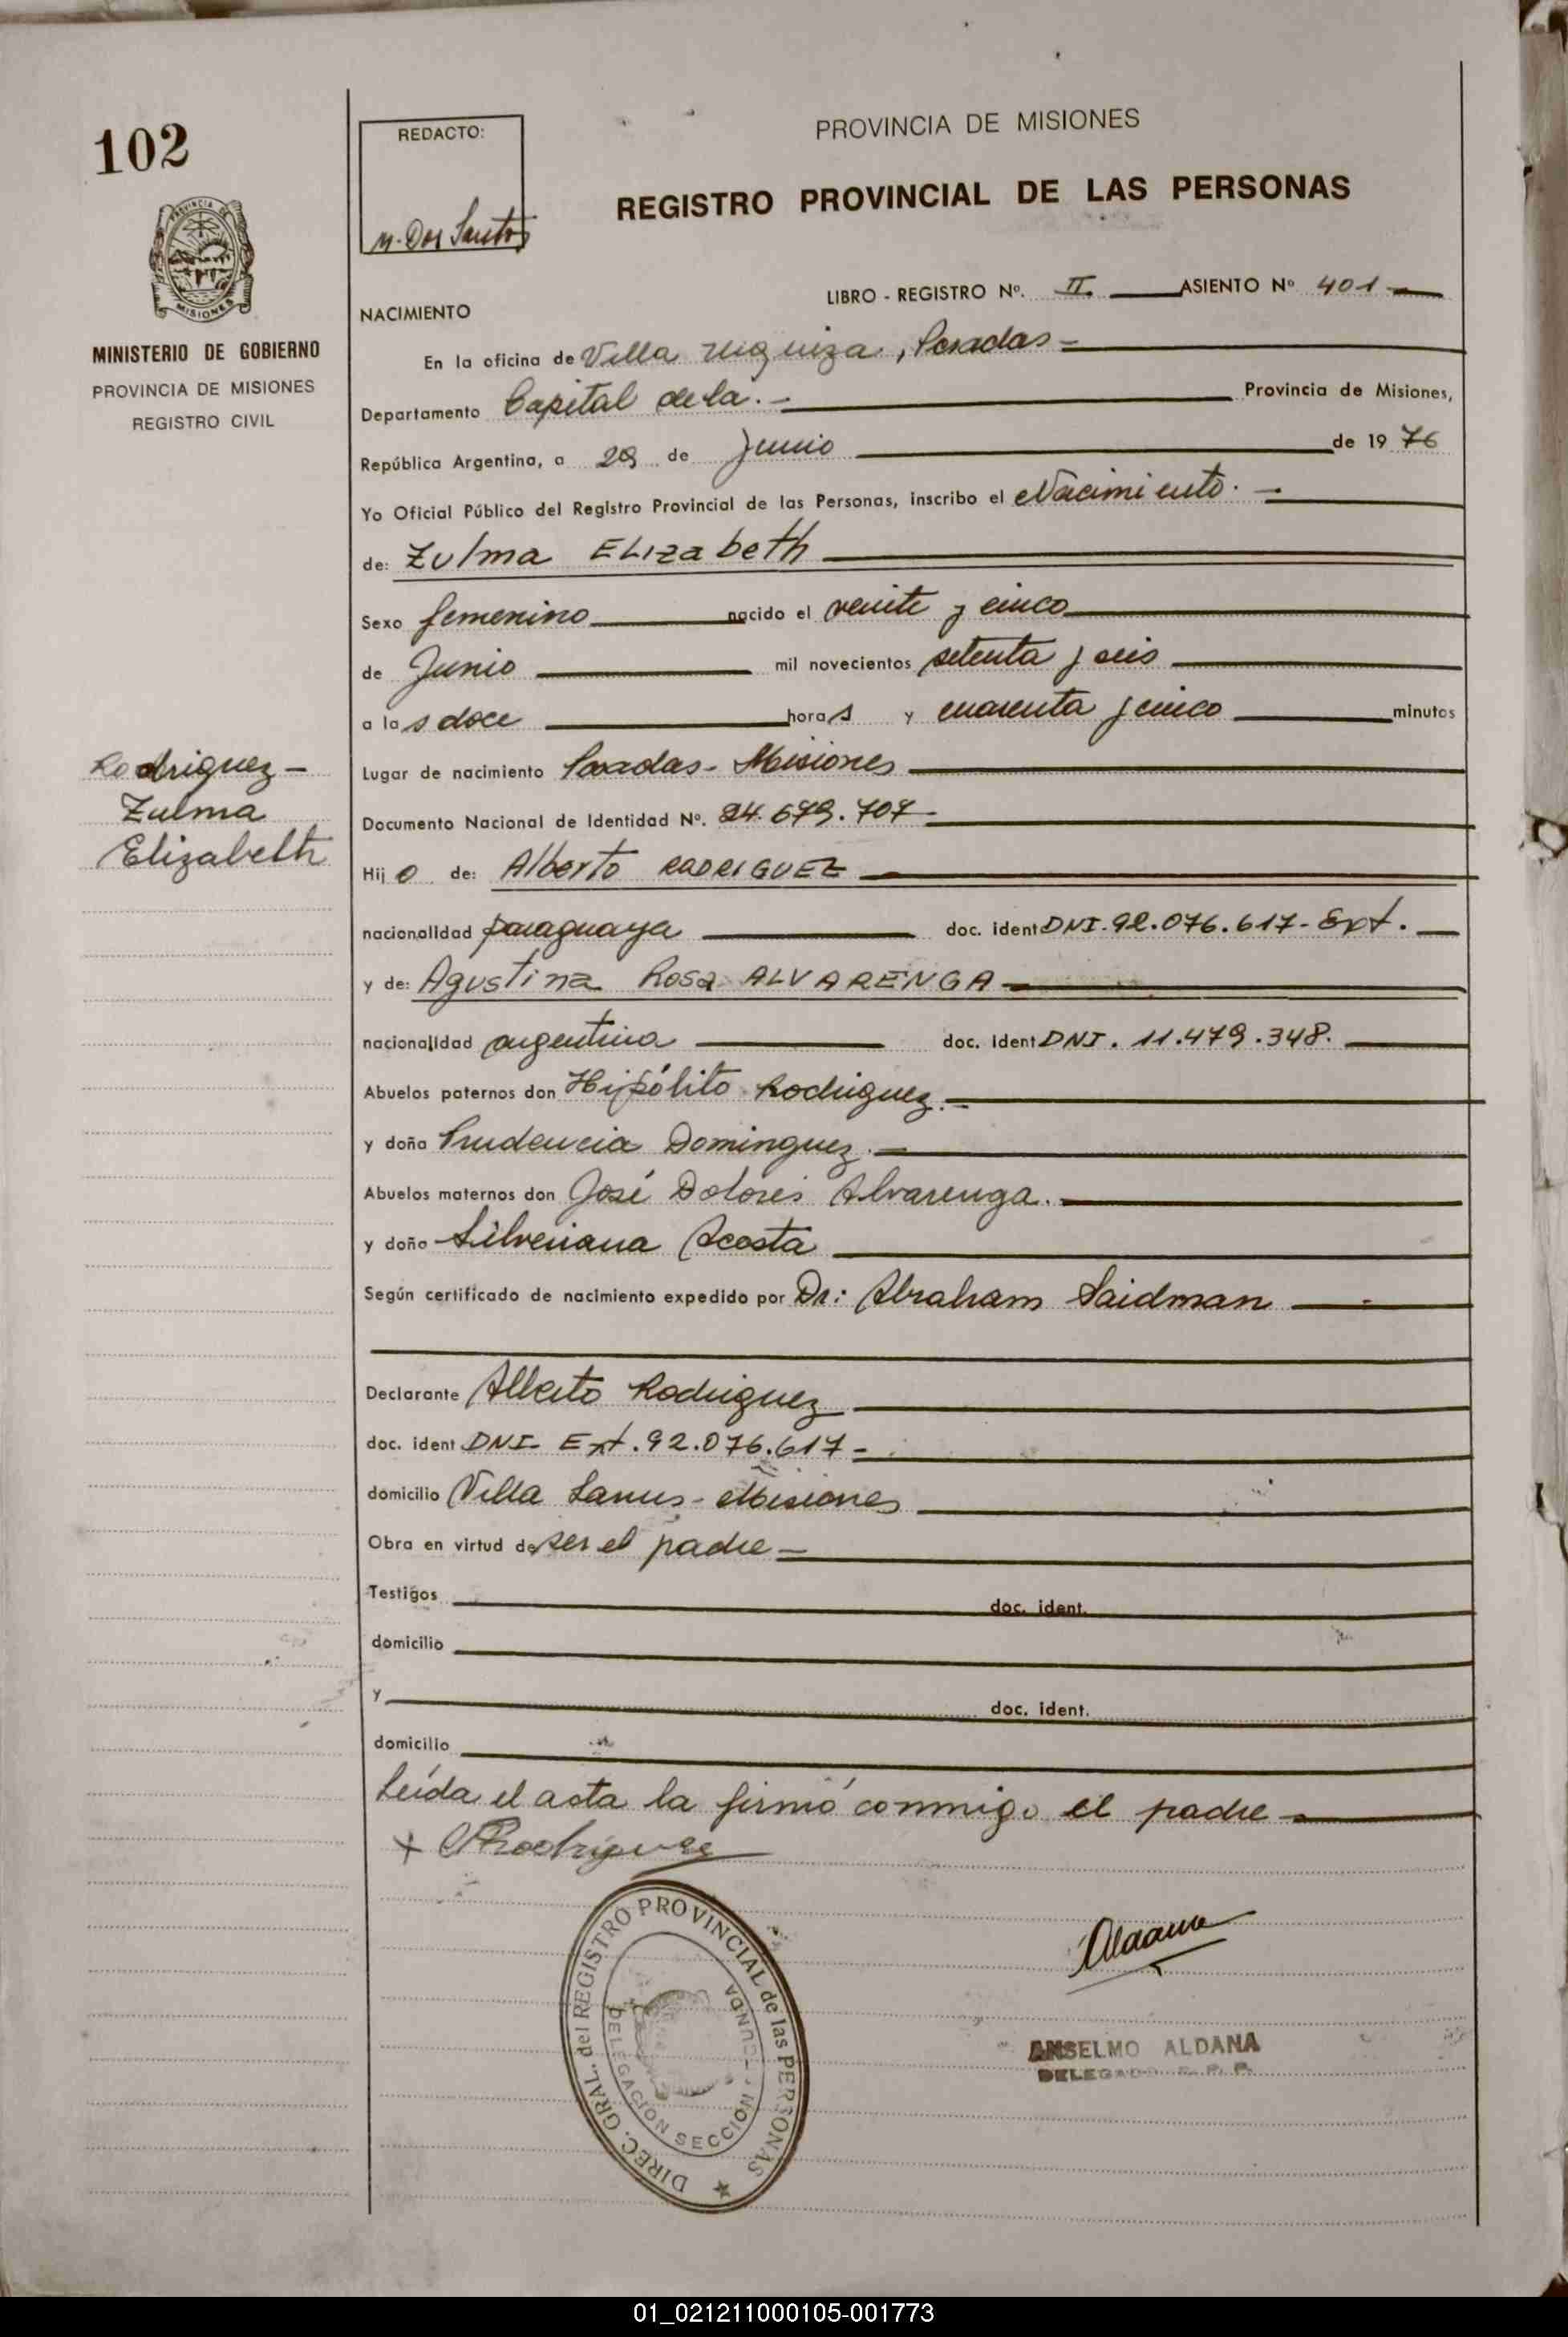 102
REDACTO:
M. Dos Santos
PROVINCIA DE MISIONES
REGISTRO PROVINCIAL DE LAS PERSONAS
PROVINCIA DE
MISIONES
MINISTERIO DE GOBIERNO
PROVINCIA DE MISIONES
REGISTRO CIVIL
LIBRO - REGISTRO Nº. II. ASIENTO Nº 401
NACIMIENTO
En la oficina de Villa Urquiza, Posadas
Departamento Capital de la. Provincia de Misiones,
República Argentina, a 29 de Junio de 1976
Yo Oficial Público del Registro Provincial de las Personas, inscribo el Nacimiento.
de: Zulma Elizabeth
Sexo femenino nacido el veinte y cinco
de Junio mil novecientos setenta y seis
a las doce horas y cuarenta y cinco minutos
Rodriguez-
Zulma
Elizabeth
Lugar de nacimiento Posadas - Misiones
Documento Nacional de Identidad Nº. 24.679.707
Hijo de: Alberto RODRIGUEZ
nacionalidad paraguaya doc. ident DNI. 92.076.617- Ext.
y de: Agustina Rosa ALVARENGA
nacionalidad argentina doc. ident DNI. 11.479.348.
Abuelos paternos don Hipólito Rodriguez.
y doña Prudencia Dominguez.
Abuelos maternos don José Dolores Alvarenga.
y doña Silveriana Acosta
Según certificado de nacimiento expedido por Dr: Abraham Saidman
Declarante Alberto Rodriguez
doc. ident DNI- Ext. 92.076.617-
domicilio Villa Lanus - Misiones
Obra en virtud de ser el padre
Testigos doc. ident.
domicilio
y doc. ident.
domicilio
Leída el acta la firmó conmigo el padre
x A Rodriguez
Aldana
DIREC. GRAL. del REGISTRO PROVINCIAL de las PERSONAS
DELEGACION SECCION
ANSELMO ALDANA
DELEGADO R. P. P.
01_021211000105-001773